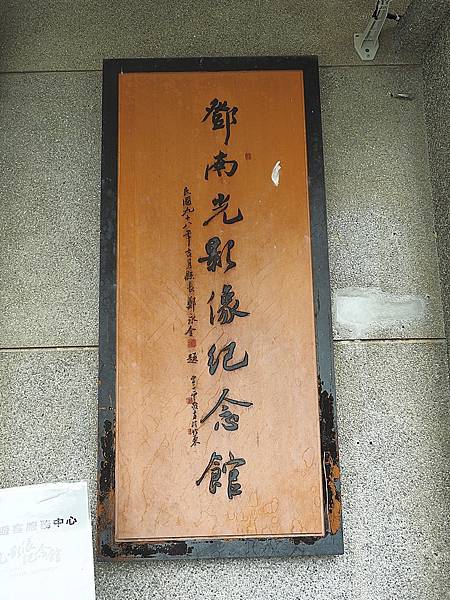 鄧南光影像紀念館
民國九十八年吉月縣長鄭永金 題
遊客服務中心
影像紀念館